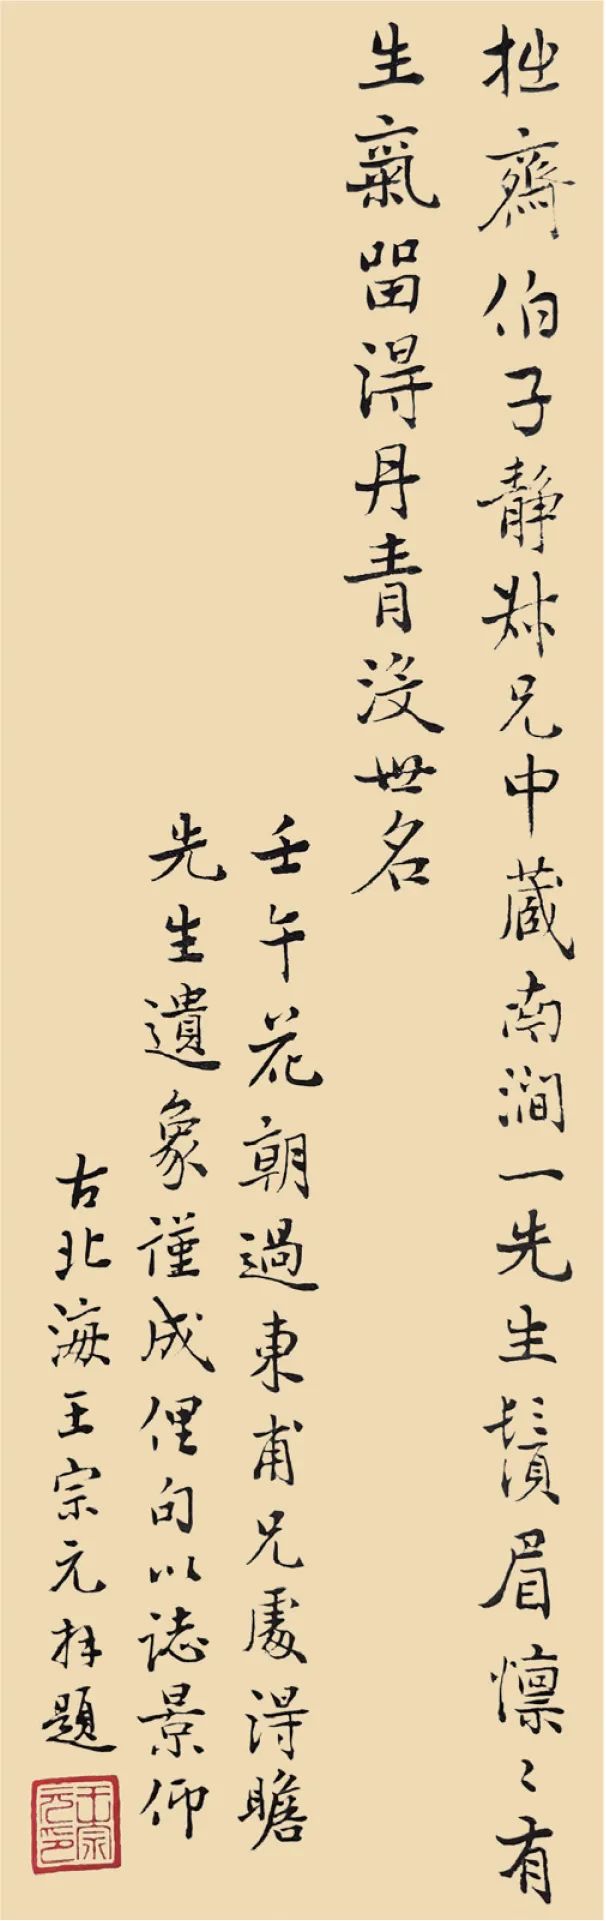 拙齋伯子靜叔兄中藏南澗一先生鬚眉懍〻有
生氣留得丹青沒世名
壬午花朝過東甫兄處得瞻
先生遺象謹成俚句以誌景仰
古北海王宗元拜題
王宗元印